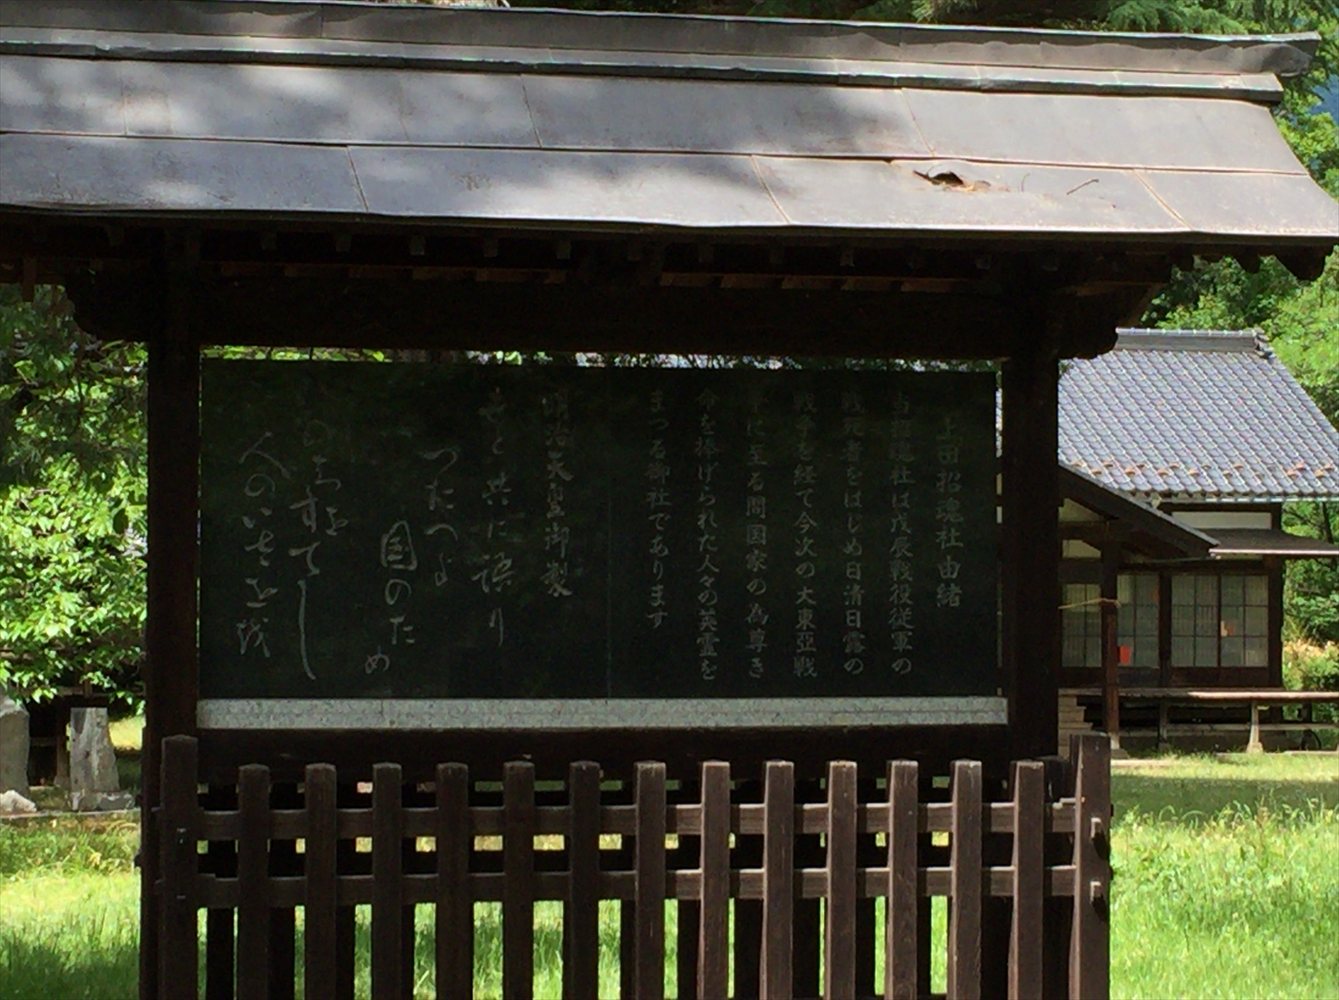 上田招魂社由緒
当招魂社は戊辰戦役従軍の
戦歿者をはじめ日清日露の
戦争を経て今次の大東亞戦
争に至る間国家の為尊き
命を捧げられた人々の英霊を
まつる御社であります
明治天皇御製
世と共に語り
つたへよ
国のため
命をすてし
人のいさを越